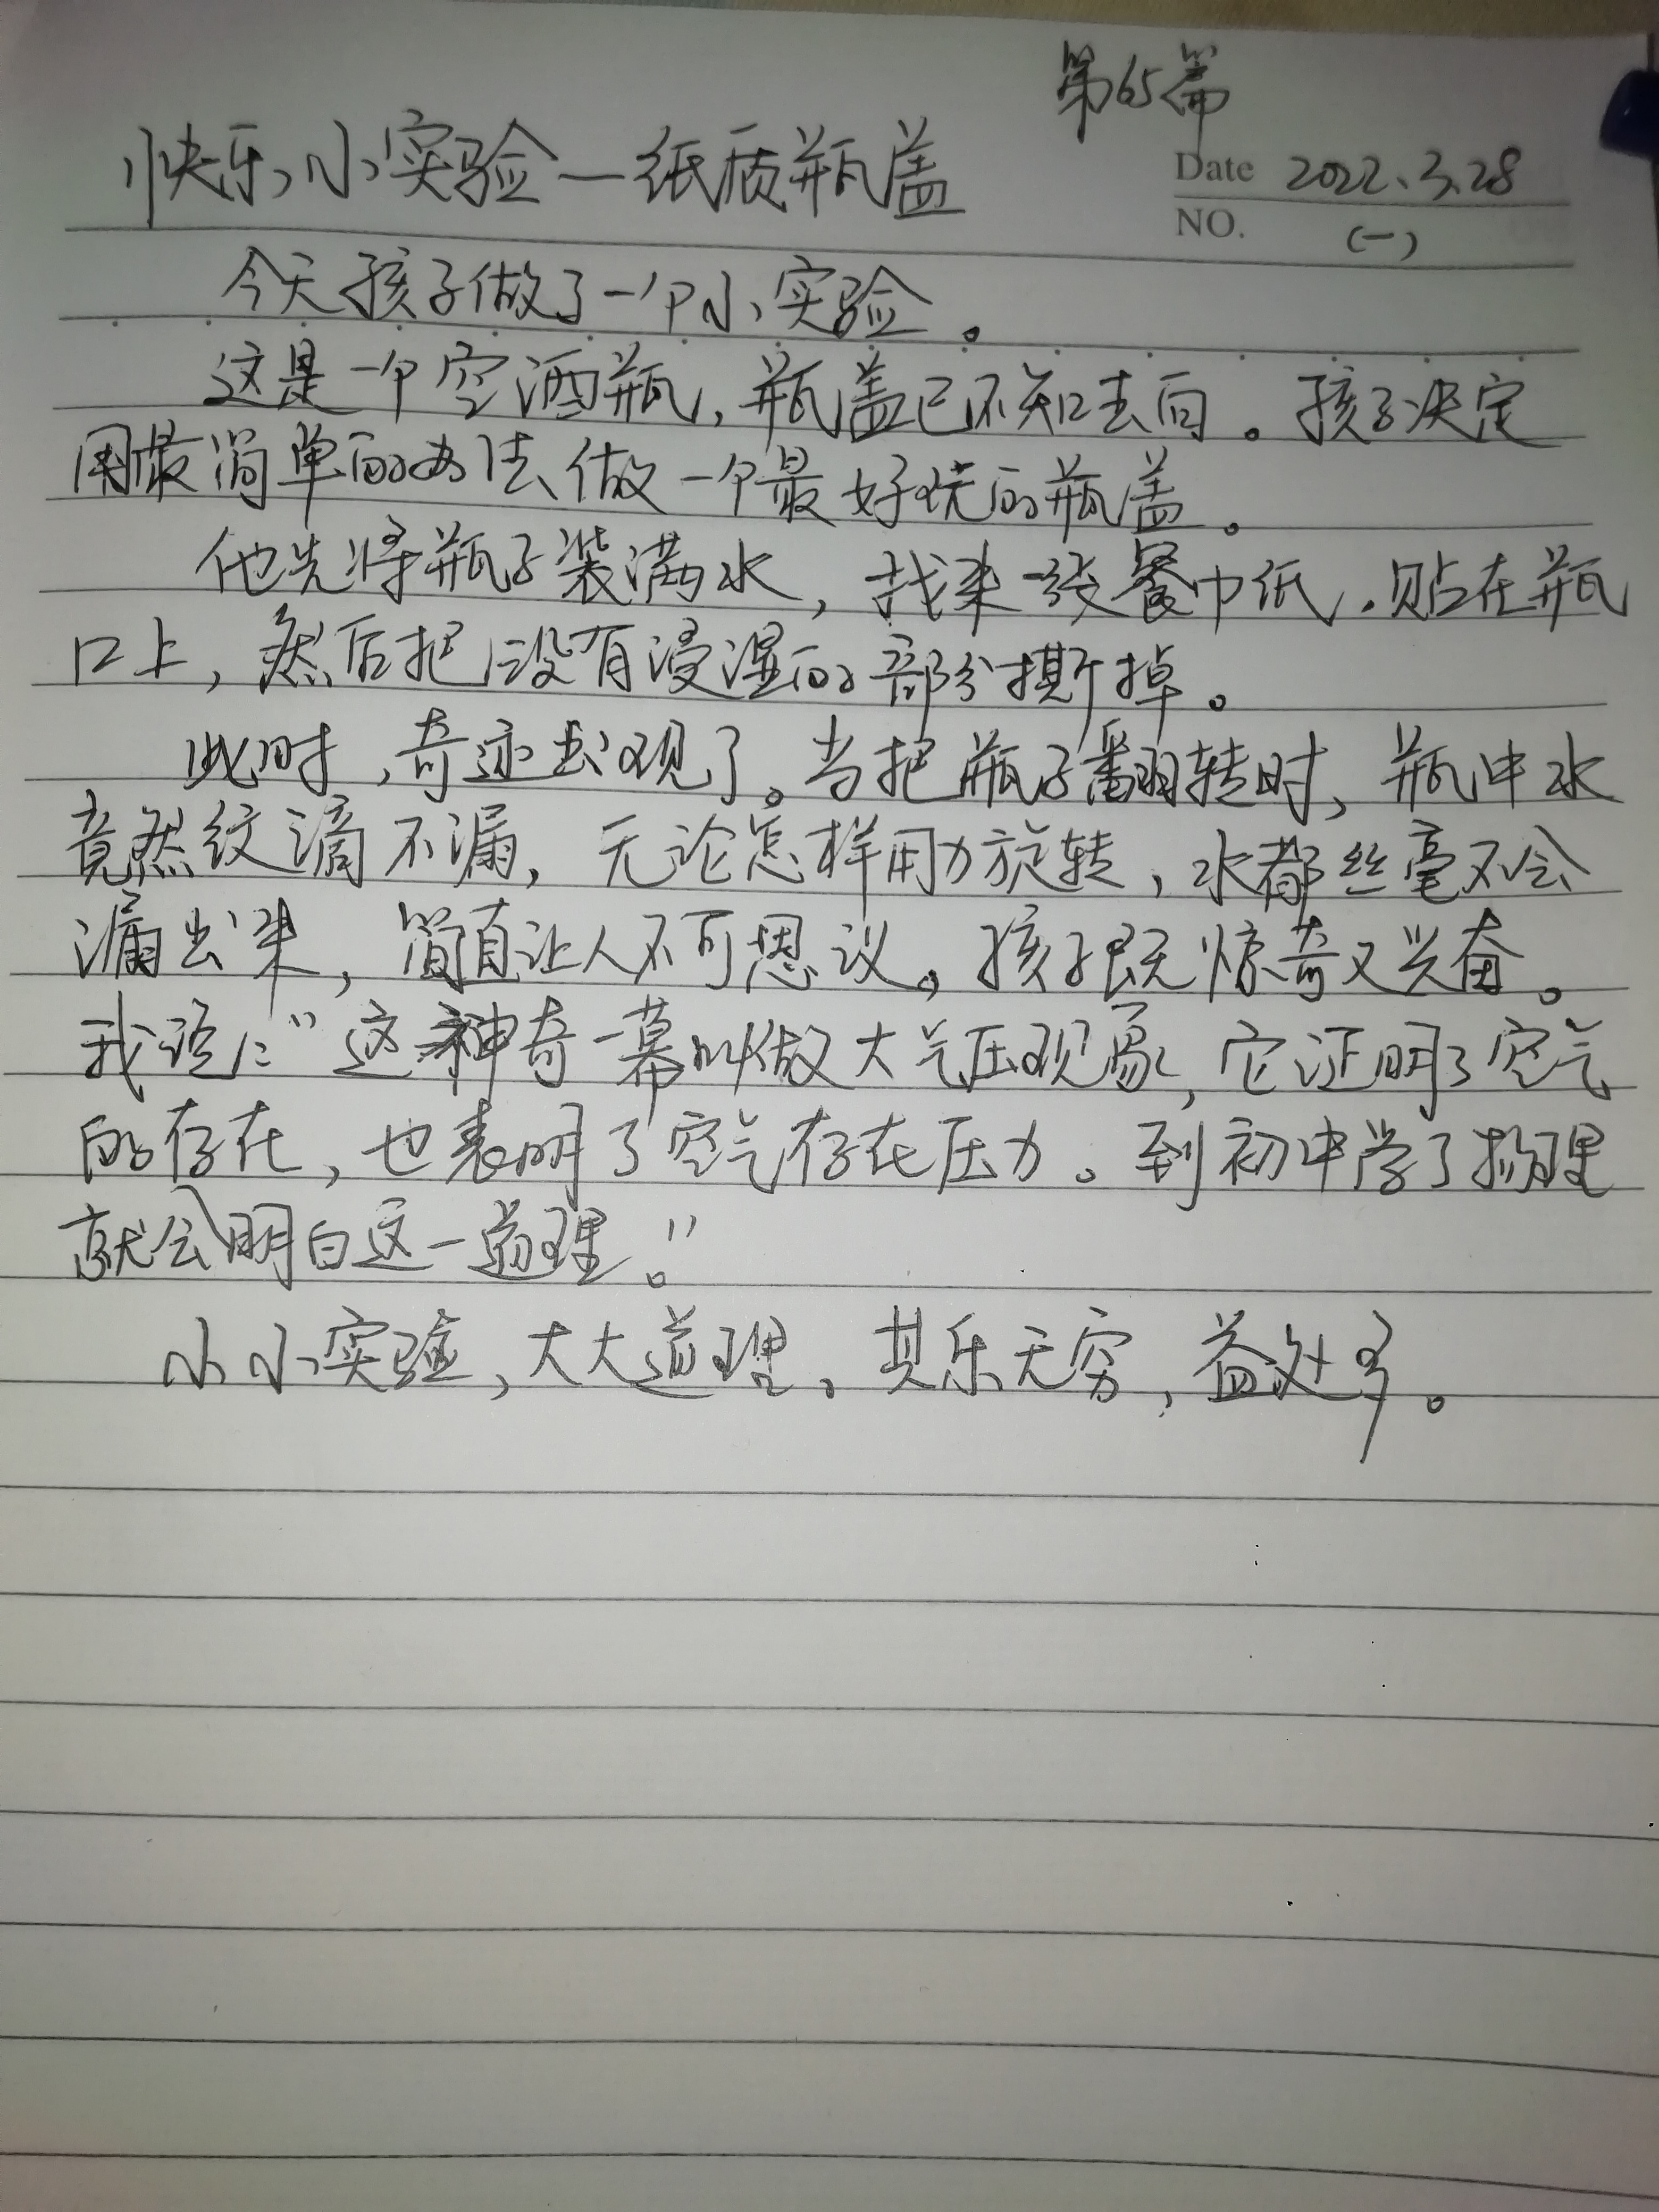 第65篇
快乐小实验—纸质瓶盖
Date 2022.3.28
NO. (一)
今天孩子做了一个小实验。
这是一个空酒瓶，瓶盖已不知去向。孩子决定
用最简单的办法做一个最好玩的瓶盖。
他先将瓶子装满水，找来一张餐巾纸，贴在瓶
口上，然后把没有浸湿的部分撕掉。
此时，奇迹出现了。当把瓶子翻转时，瓶中水
竟然纹滴不漏，无论怎样用力旋转，水都丝毫不会
漏出来，简直让人不可思议。孩子既惊奇又兴奋。
我说："这神奇一幕叫做大气压现象，它证明了空气
的存在，也表明了空气存在压力。到初中学了物理
就会明白这一道理。"
小小实验，大大道理，其乐无穷，益处多。